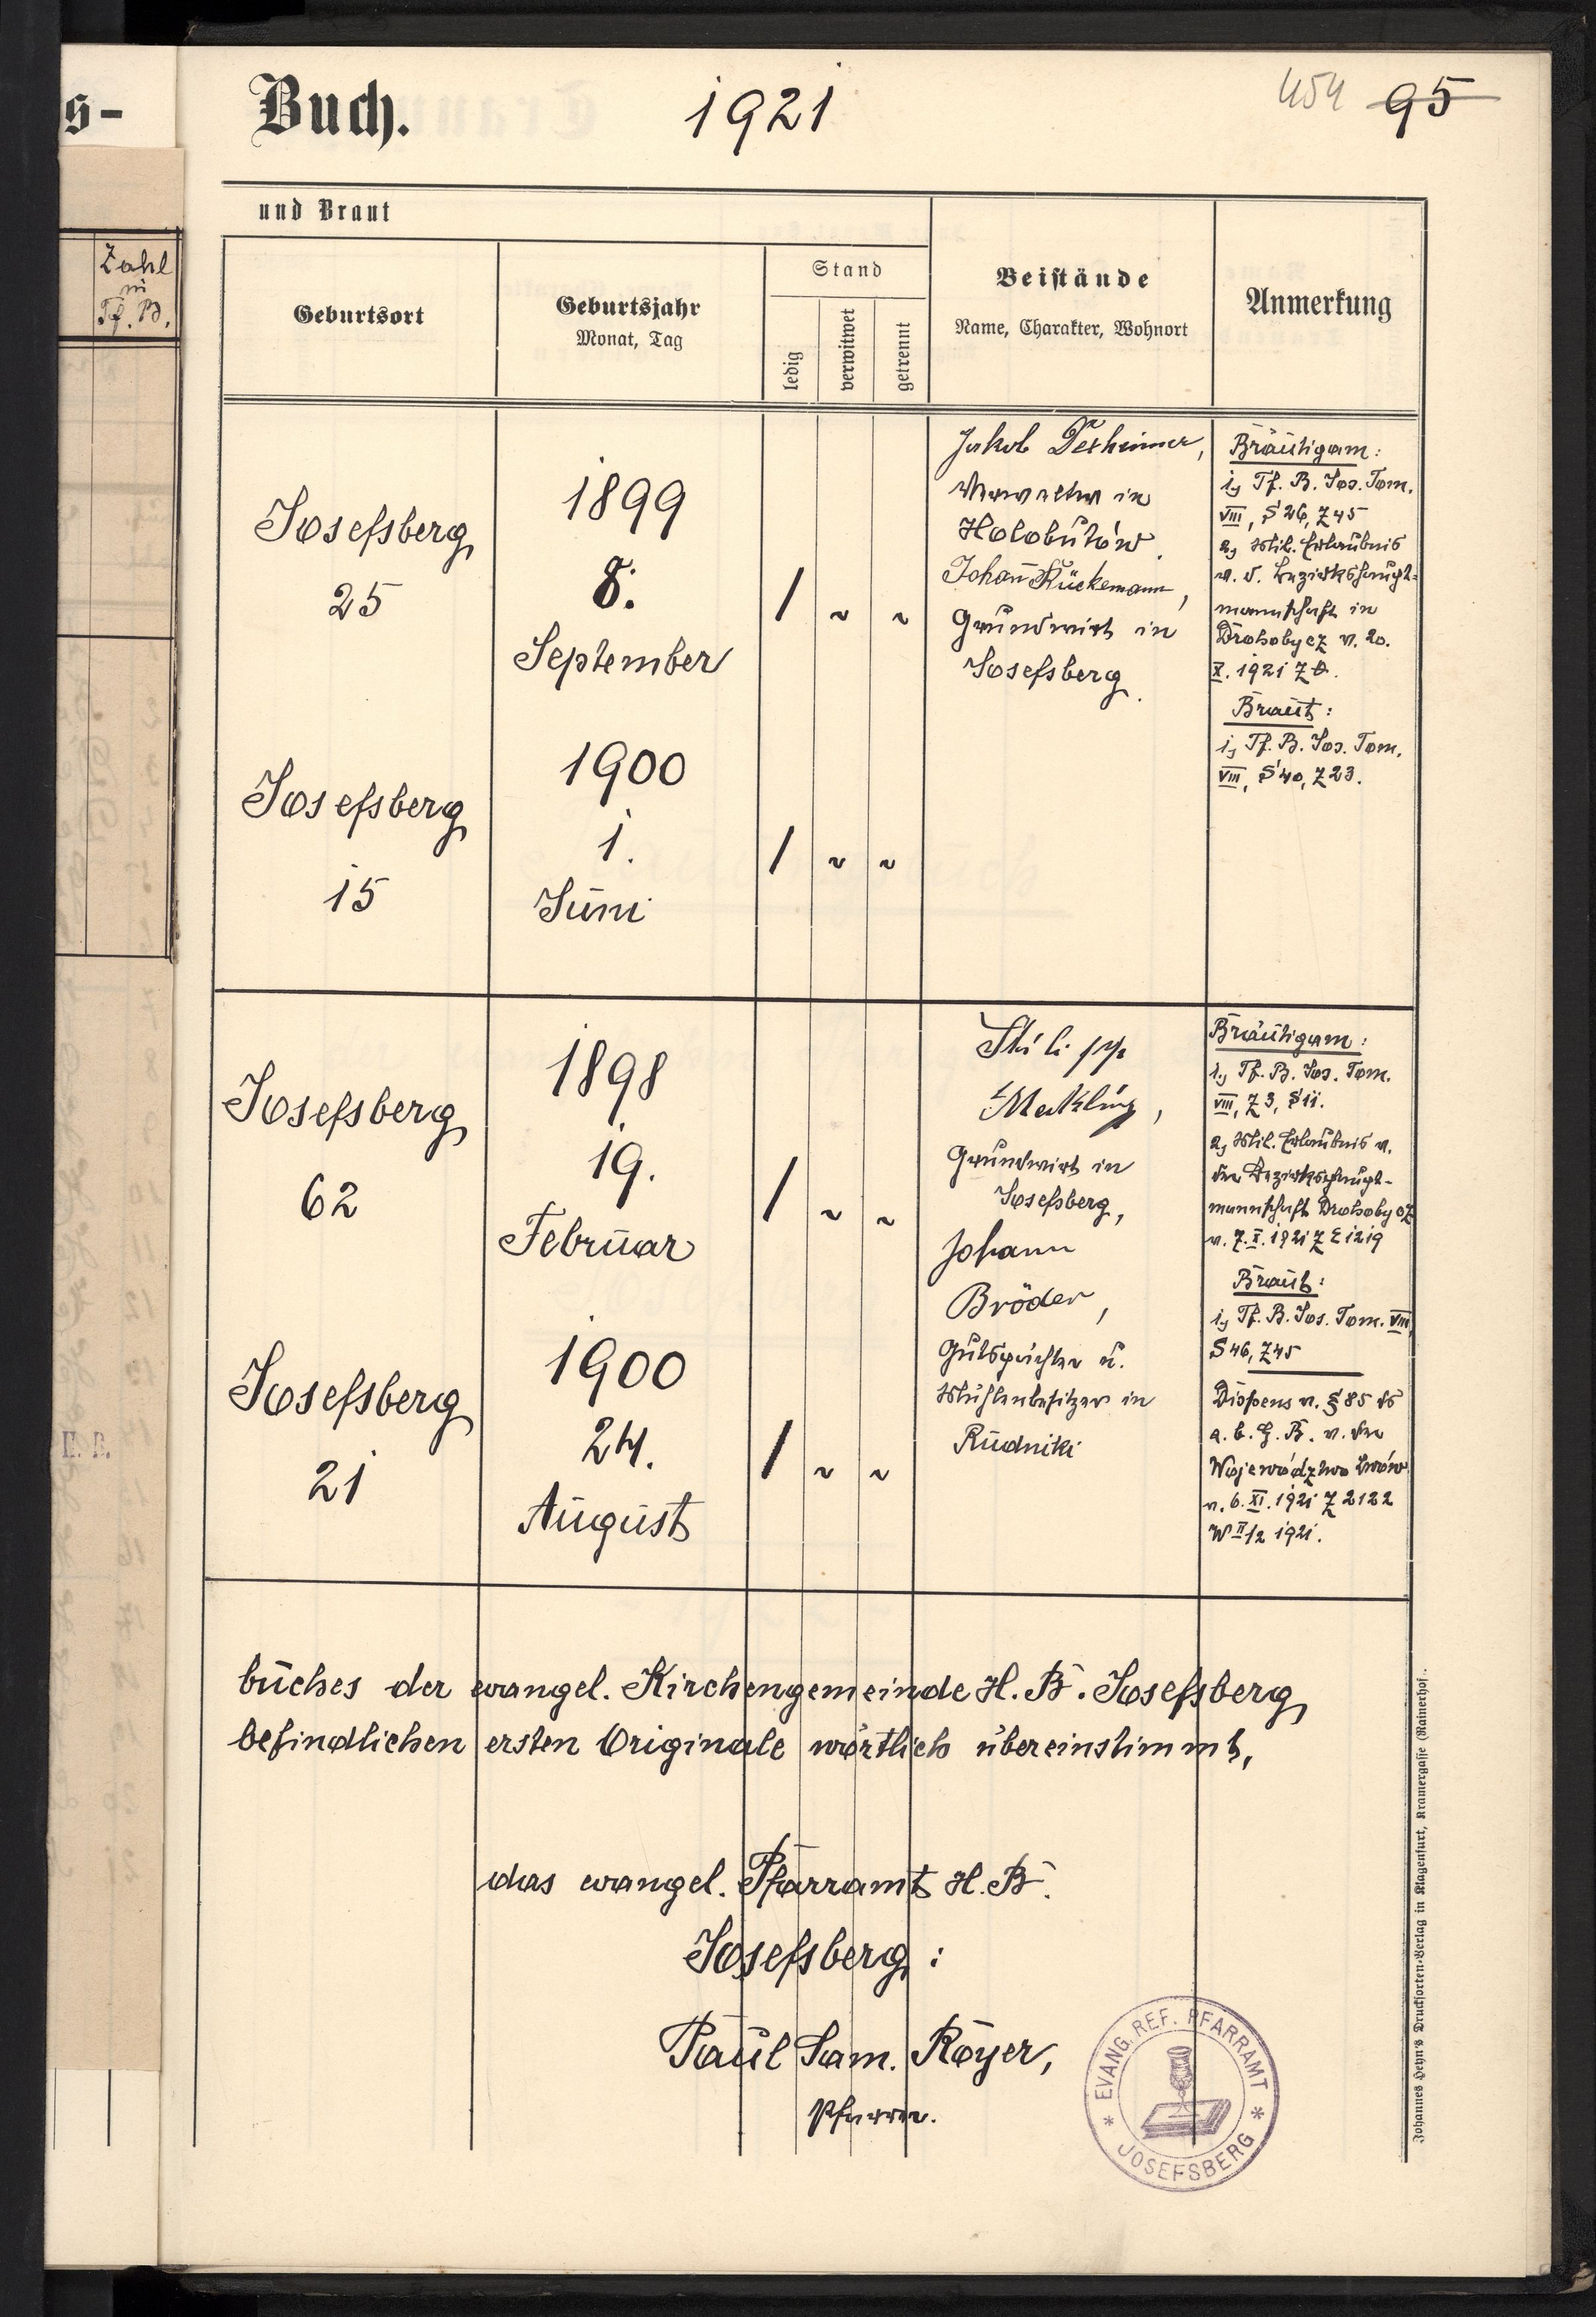 s-
Buch.
1921
454 95
Zahl
in
Tf. B.
und Braut
Geburtsort
Geburtsjahr
Monat, Tag
Stand
ledig
verwitwet
getrennt
Beistände
Name, Charakter, Wohnort
Anmerkung
Josefsberg
25
1899
8.
September
/ " "
Jakob Dexheimer,
Verwalter in
Holobutów.
Johann Rückemann,
Grundwirt in
Josefsberg.
Bräutigam:
1, Tf. B. Jos. Tom.
VIII, S 26, Z 45
2, Mil. Erlaubnis
v. d. Bezirkshaupt-
mannschaft in
Drohobycz v. 20.
X. 1921 Z
Braut:
1, Tf. B. Jos. Tom.
VIII, S 40, Z 23.
Josefsberg
15
1900
1.
Juni
/ " "
Josefsberg
62
1898
19.
Februar
/ " "
Philipp
Makling,
Grundwirt in
Josefsberg,
Johann
Bröder,
Gutspächter u.
Mühlenbesitzer in
Rudniki
Bräutigam:
1, Tf. B. Jos. Tom.
VIII, Z 3, S 11.
2, Mil. Erlaubnis v.
der Bezirkshaupt-
mannschaft Drohobycz
v. 7. X. 1921 Z E 1219
Braut:
1, Tf. B. Jos. Tom. VIII
S 46, Z 45
Dispens v. § 85 ds
a. b. G. B. v. der
Wojewódzwo Lwów
v. 6. XI. 1921 Z 2122
W II/2 1921.
Josefsberg
21
1900
24.
August
/ " "
buches der evangel. Kirchengemeinde H. B. Josefsberg
befindlichen ersten Originale wörtlich übereinstimmt,
das evangel. Pfarramt H. B.
Josefsberg:
Paul Sam. Royer,
Pfarrer.
EVANG. REF. PFARRAMT
* JOSEFSBERG *
Johannes Heyn's Drucksorten-Verlag in Klagenfurt, Kramergasse (Rainerhof).